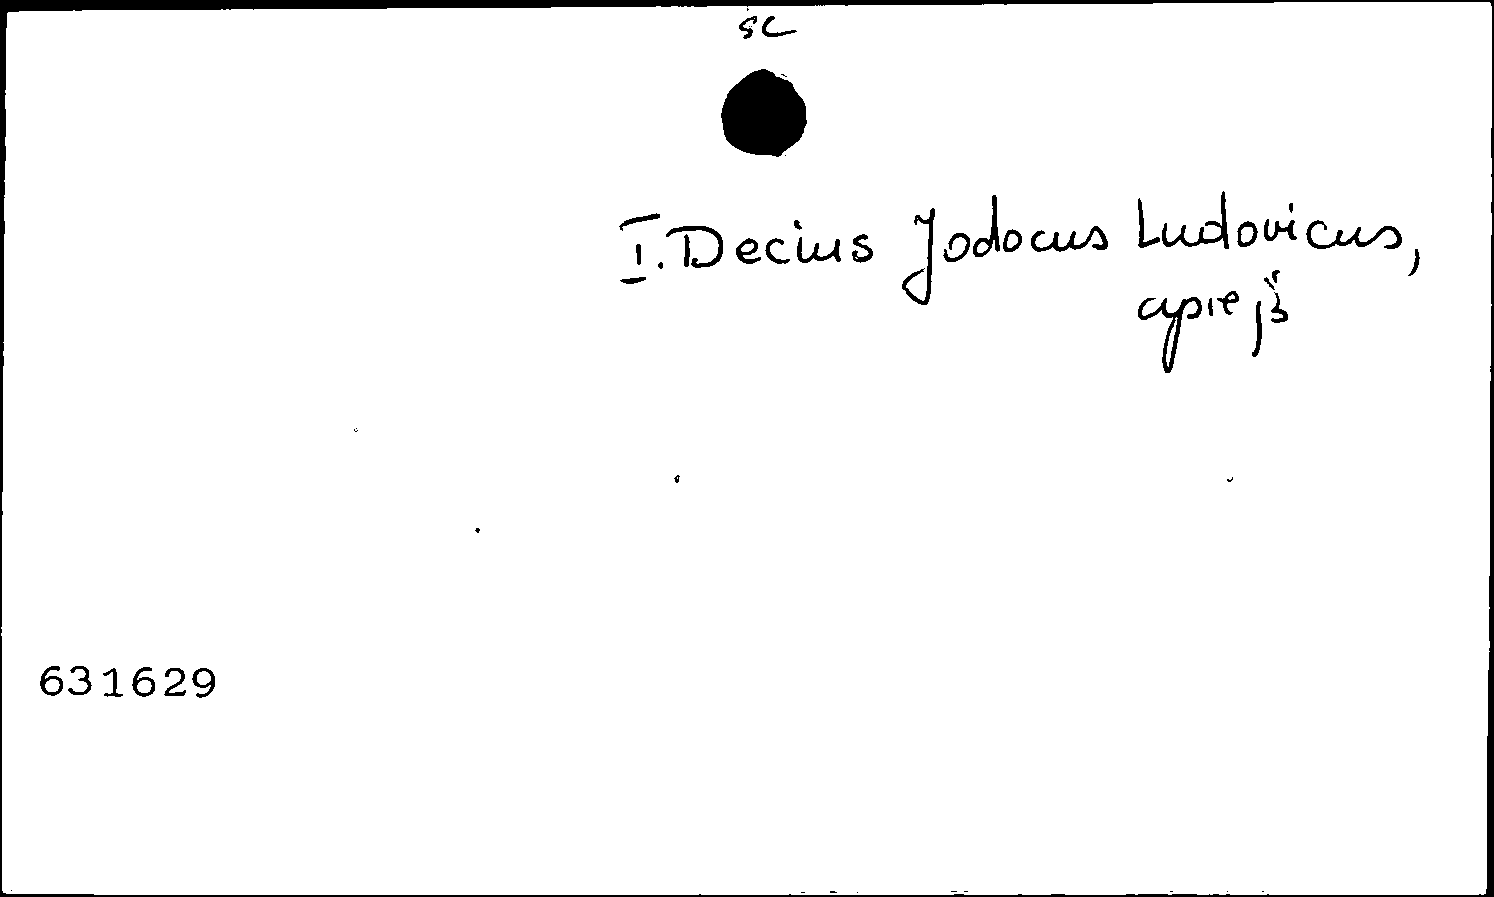 sc
I. Decius Jodocus Ludovicus,
apie jį
631629